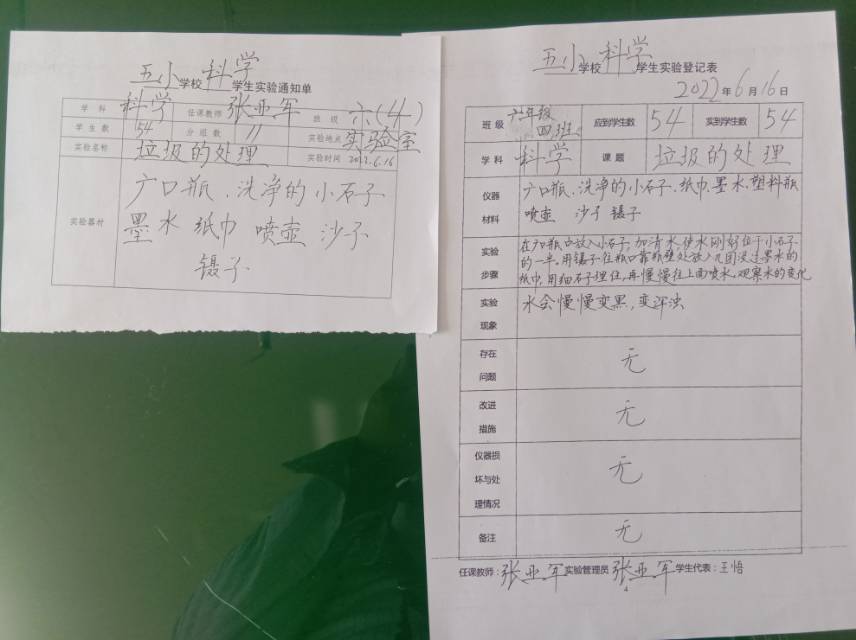 五小学校科学学生实验通知单
学科 科学 任课教师 张亚军 班级 六(4)
学生数 54 分组数 11 实验地点 实验室
实验名称 垃圾的处理 实验时间 2022.6.16
实验器材
广口瓶、洗净的小石子
墨水 纸巾 喷壶 沙子
镊子
五小学校科学学生实验登记表
2022年6月16日
班级 六年级四班 应到学生数 54 实到学生数 54
学科 科学 课题 垃圾的处理
仪器材料
广口瓶、洗净的小石子、纸巾、墨水、塑料瓶
喷壶 沙子 镊子
实验步骤
在广口瓶中放入小石子,加清水,使水刚好位于小石子
的一半。用镊子在瓶口靠瓶壁处放入几团浸过墨水的
纸巾,用细石子埋住,再慢慢往上面喷水,观察水的变化
实验现象
水会慢慢变黑,变浑浊
存在问题 无
改进措施 无
仪器损坏与处理情况 无
备注 无
任课教师:张亚军 实验管理员 张亚军 学生代表:王悟